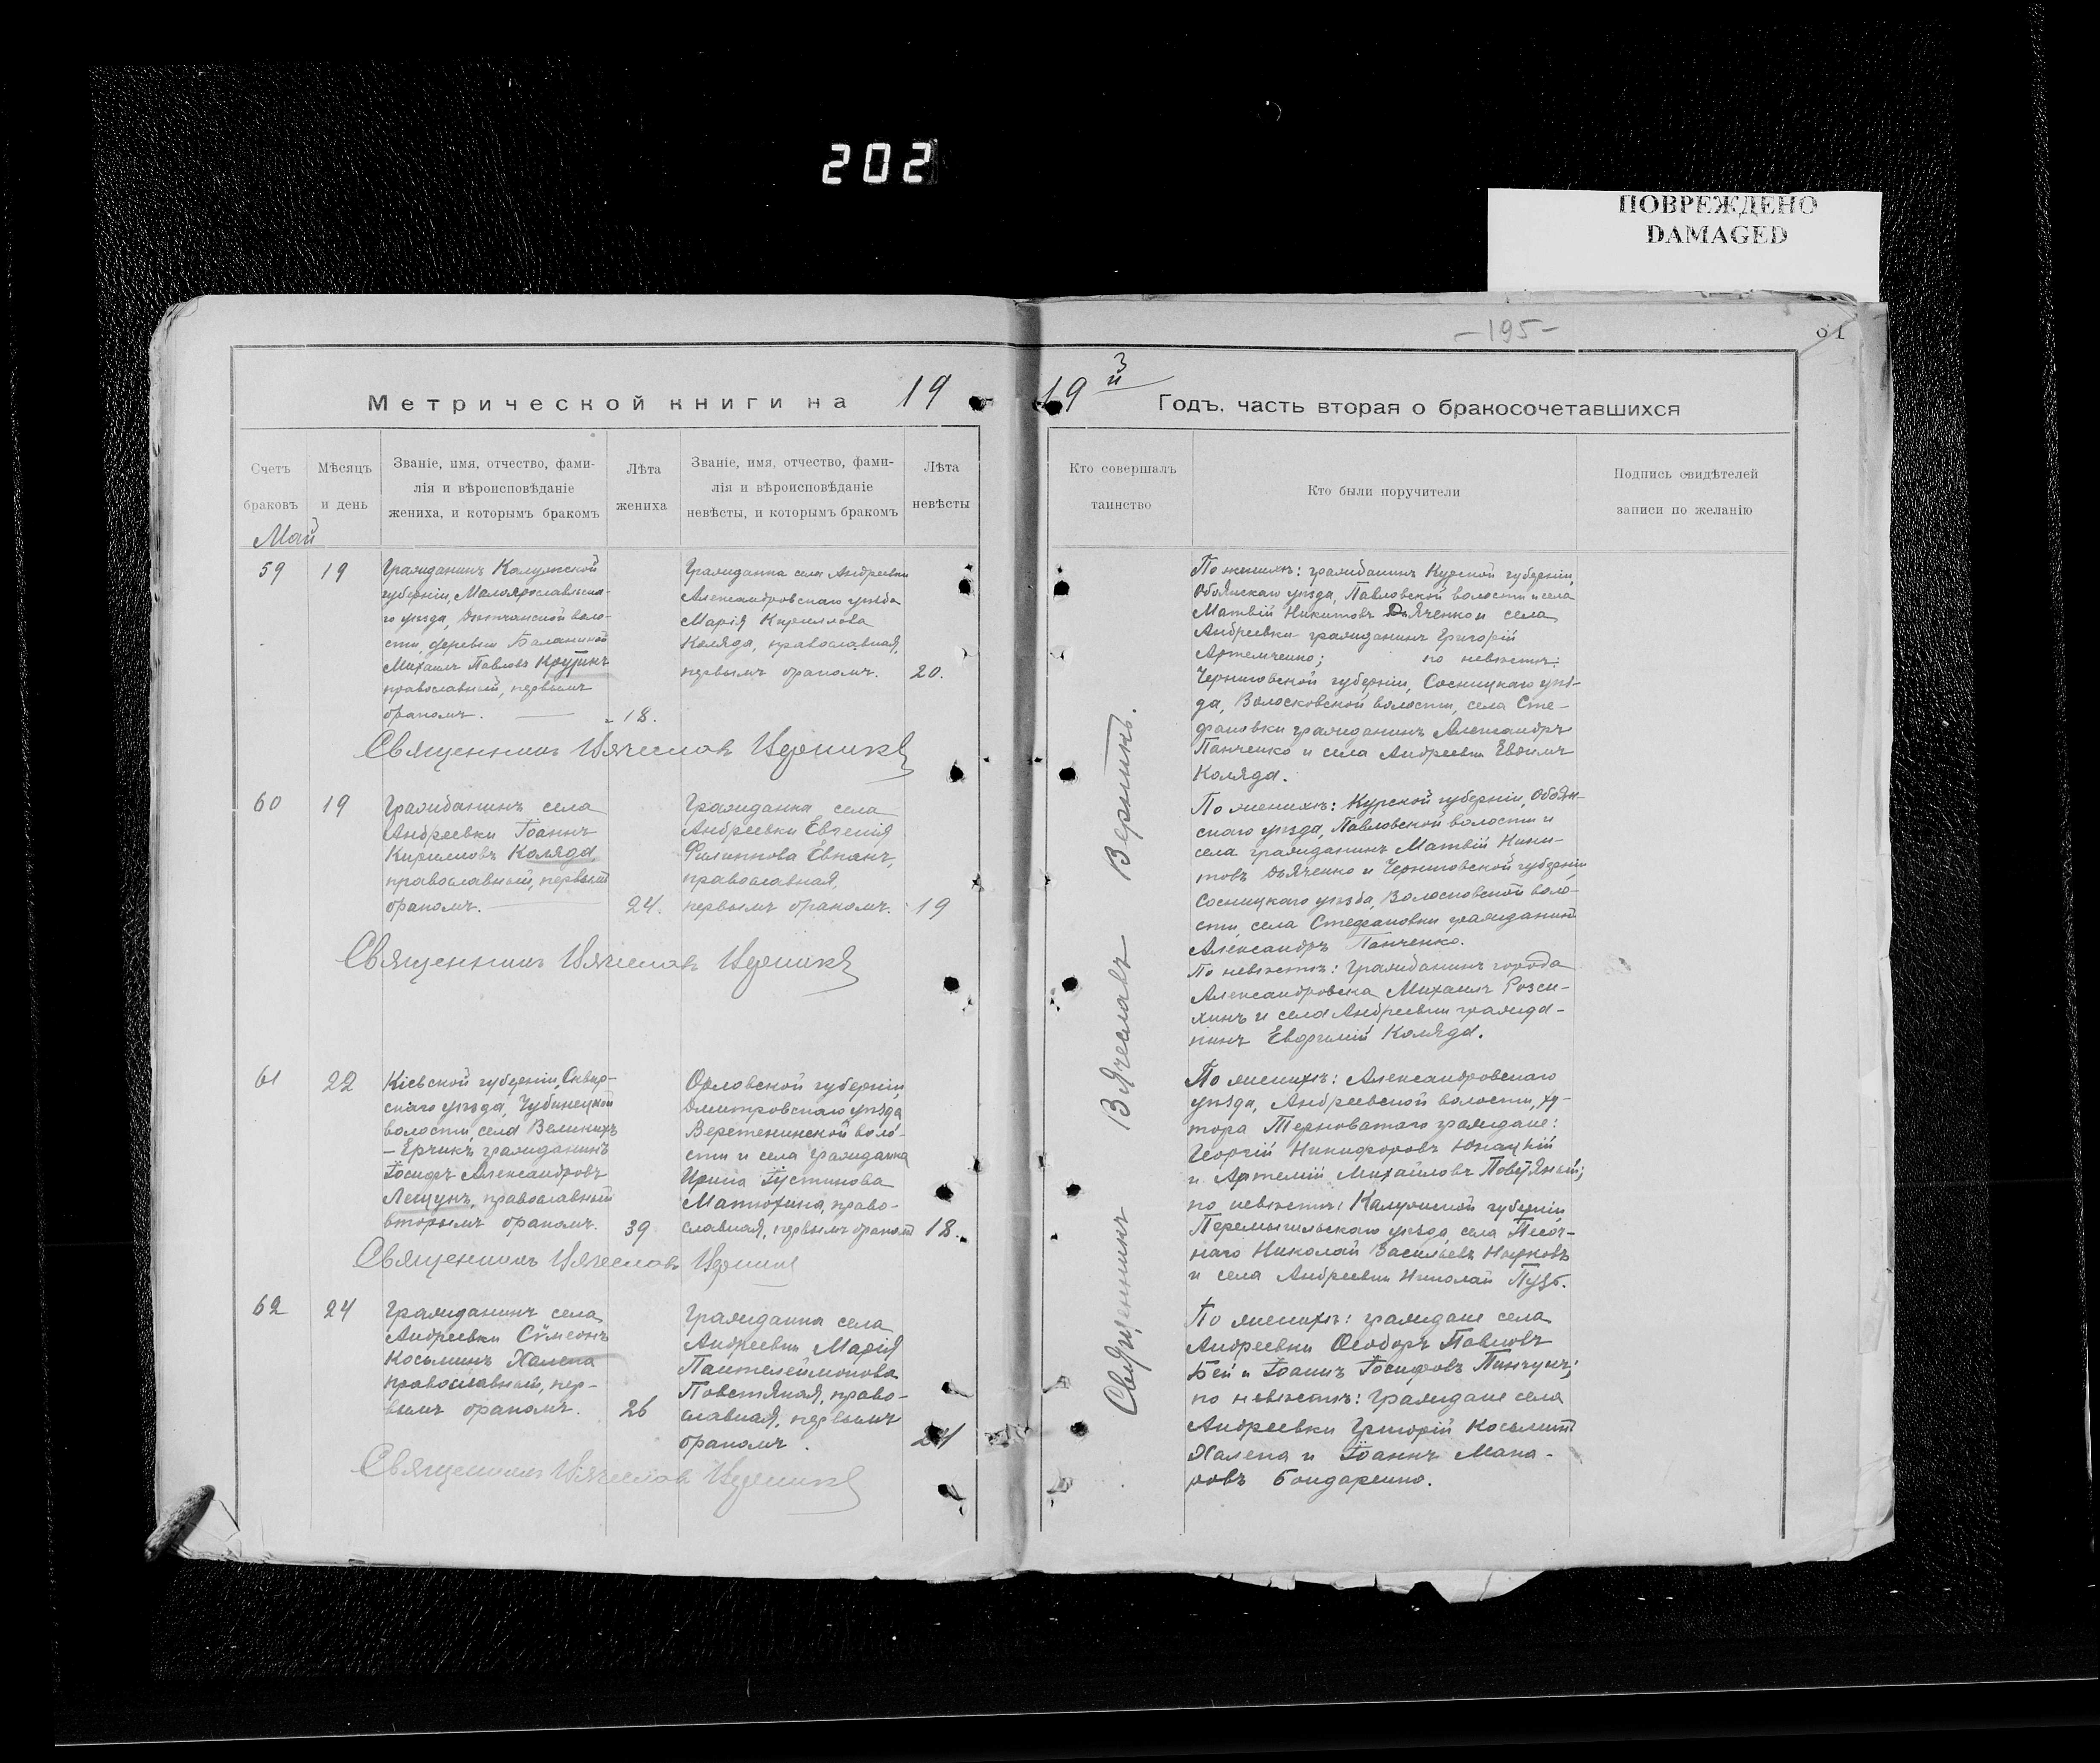 202
ПОВРЕЖДЕНО
DAMAGED
-195-
61
Метрической книги на 19
19 й Годъ, часть вторая о бракосочетавшихся
Счетъ браковъ
Мѣсяцъ и день
Званіе, имя, отчество, фами-
лія и вѣроисповѣданіе
жениха, и которымъ бракомъ
Лѣта
жениха
Званіе, имя, отчество, фами-
лія и вѣроисповѣданіе
невѣсты, и которымъ бракомъ
Лѣта
невѣсты
Кто совершалъ
таинство
Кто были поручители
Подпись свидѣтелей
записи по желанію
Май
59
19
Гражданинъ Калужской
губерніи, Малоярославецка-
го уѣзда, волo-
сти, деревни
Михаилъ Павловъ
православный, первымъ
бракомъ.
18.
Гражданка села Андреевки
Александровскаго уѣзда
Марія Кириллова
Коляда, православная,
первымъ бракомъ.
20.
По женихѣ: гражданинъ Курской губерніи,
Обоянскаго уѣзда, Павловской волости и села
Матвій Никитовъ Дьяченко и села
Андреевки гражданинъ Григорій
Артемченко; по невѣстѣ:
Черниговской губерніи, Сосницкаго уѣз-
да, Волосковской волости, села Сте-
фановки гражданинъ Александръ
Панченко и села Андреевки Евфимъ
Коляда.
Священникъ Вячеславъ
60
19
Гражданинъ села
Андреевки Іоаннъ
Кирилловъ Коляда,
православный, первымъ
бракомъ.
24.
Гражданка села
Андреевки Евгенія
Филиппова Евпакъ,
православная,
первымъ бракомъ.
19
По женихѣ: Курской губерніи, Обоян-
скаго уѣзда, Павловской волости и
села гражданинъ Матвій Ники-
товъ Дьяченко и Черниговской губерніи
Сосницкаго уѣзда, Волосковской воло-
сти, села Стефановки гражданинъ
Александръ Панченко.
По невѣстѣ: гражданинъ города
Александровска Михаилъ
и села Андреевки гражда-
нинъ Евфимій Коляда.
Священникъ Вячеславъ
61
22
Кіевской губерніи, Сквир-
скаго уѣзда, Чубинецкой
волости, села Великихъ
-Ерчикъ гражданинъ
Іосифъ Александровъ
Лещунъ, православный
вторымъ бракомъ.
39
Орловской губерніи,
Дмитровскаго уѣзда
Веретенинской воло-
сти и села гражданка
Ирина Іустинова
Матюхина, право-
славная, первымъ бракомъ
18.
По женихѣ: Александровскаго
уѣзда, Андреевской волости, ху-
тора Терноватаго граждане:
Георгій Никифоровъ Юнацкій
и Артемій Михайловъ Повстяный;
по невѣстѣ: Калужской губерніи
Перемышльскаго уѣзда, села Песоч-
наго Николай Васильевъ
и села Андреевки Николай Пузь.
Священникъ Вячеславъ
62
24
Гражданинъ села
Андреевки Сѵмеонъ
Косьминъ Халепа
православный, пер-
вымъ бракомъ.
26
Гражданка села
Андреевки Марія
Пантелеймонова
Повстяная, право-
славная, первымъ
бракомъ.
21
По женихѣ: граждане села
Андреевки Ѳеодоръ Павловъ
Бей и Іоаннъ Іосифовъ Пинчукъ;
по невѣстѣ: граждане села
Андреевки Григорій Косьминъ
Халепа и Іоаннъ Мака-
ровъ Бондаренко.
Священникъ Вячеславъ
Священникъ Вячеславъ